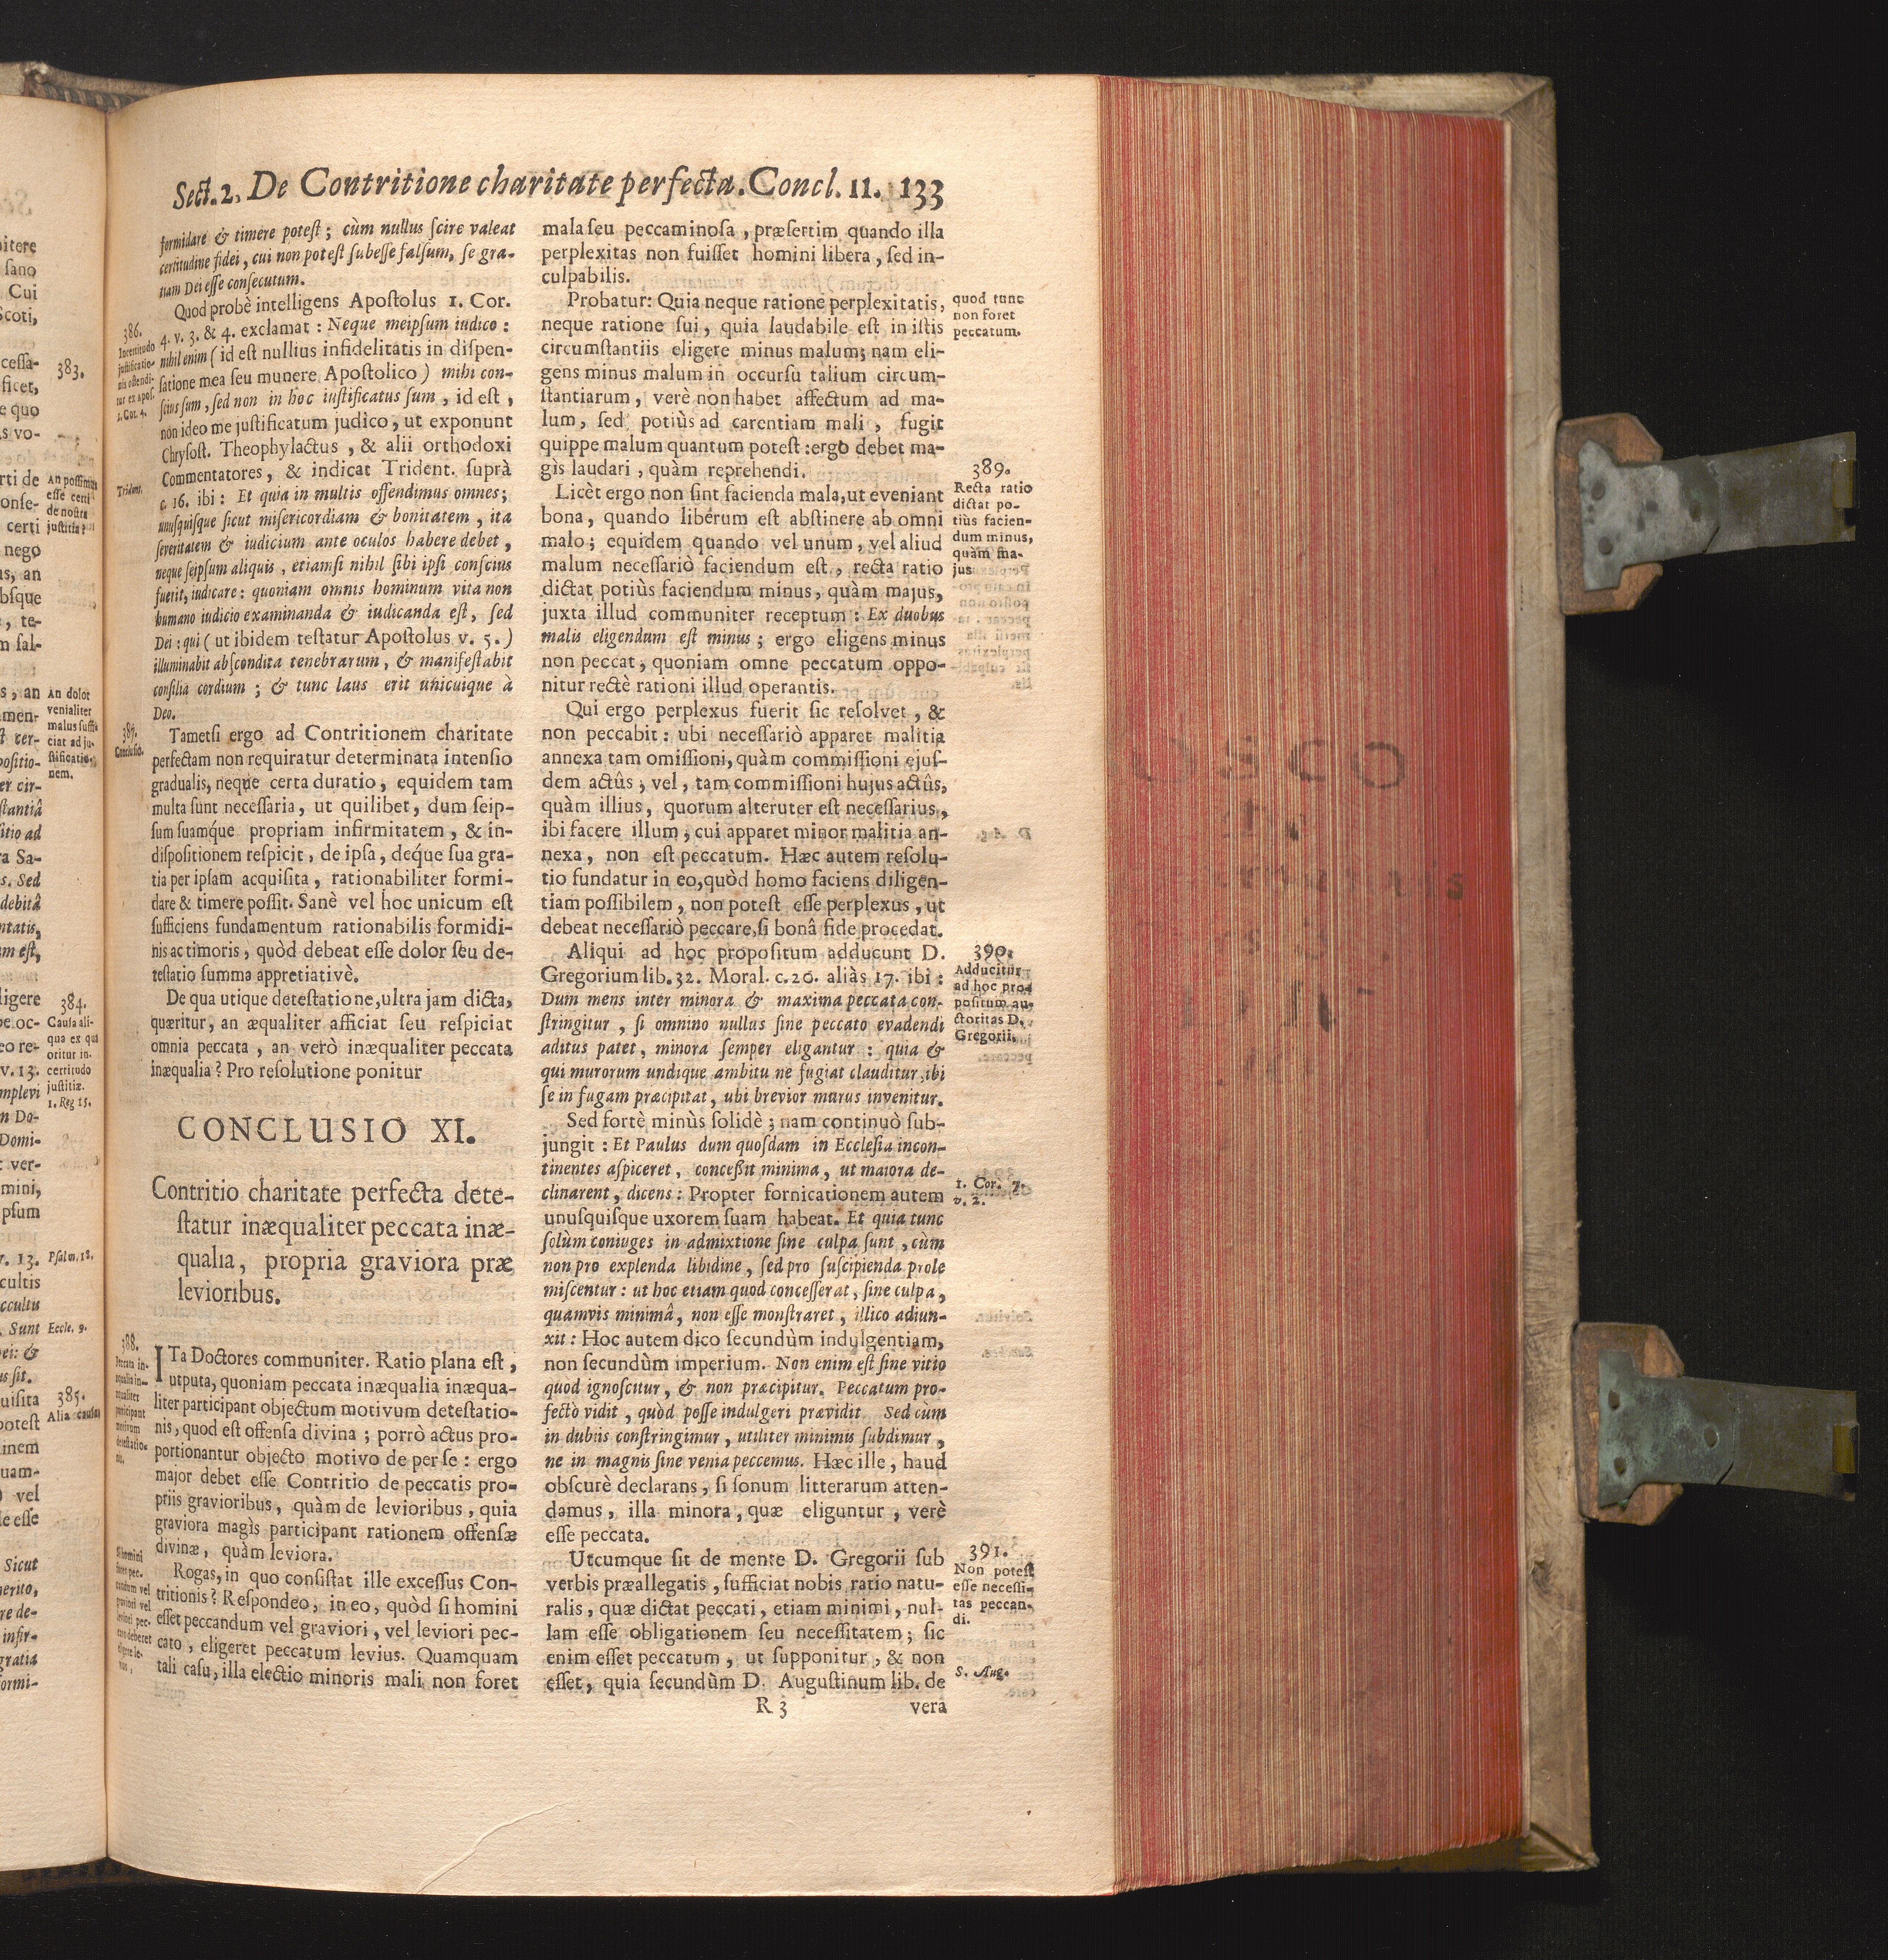 Sect. 2. De Contritione charitate perfecta. Concl. 11. 133
formidare & timere potest; cùm nullus scire valeat
certitudine fidei, cui non potest subesse falsum, se gra-
tiam Dei esse consecutum.
Quod probè intelligens Apostolus 1. Cor.
4. v. 3. & 4. exclamat: Neque meipsum iudico:
nihil enim (id est nullius infidelitatis in dispen-
satione mea seu munere Apostolico) mihi con-
scius sum, sed non in hoc iustificatus sum, id est,
non ideo me justificatum judico, ut exponunt
Chrysost. Theophylactus, & alii orthodoxi
Commentatores, & indicat Trident. suprà
c. 16. ibi: Et quia in multis offendimus omnes;
unusquisque sicut misericordiam & bonitatem, ita
severitatem & iudicium ante oculos habere debet,
neque seipsum aliquis, etiamsi nihil sibi ipsi conscius
fuerit, iudicare: quoniam omnis hominum vita non
humano iudicio examinanda & iudicanda est, sed
Dei: qui (ut ibidem testatur Apostolus v. 5.)
illuminabit abscondita tenebrarum, & manifestabit
consilia cordium; & tunc laus erit unicuique à
Deo.
Tametsi ergo ad Contritionem charitate
perfectam non requiratur determinata intensio
gradualis, neque certa duratio, equidem tam
multa sunt necessaria, ut quilibet, dum seip-
sum suamque propriam infirmitatem, & in-
dispositionem respicit, de ipsa, deque sua gra-
tia per ipsam acquisita, rationabiliter formi-
dare & timere possit. Sanè vel hoc unicum est
sufficiens fundamentum rationabilis formidi-
nis ac timoris, quòd debeat esse dolor seu de-
testatio summa appretiativè.
De qua utique detestatione, ultra jam dicta,
quæritur, an æqualiter afficiat seu respiciat
omnia peccata, an verò inæqualiter peccata
inæqualia? Pro resolutione ponitur
CONCLUSIO XI.
Contritio charitate perfecta dete-
statur inæqualiter peccata inæ-
qualia, propria graviora præ
levioribus.
ITa Doctores communiter. Ratio plana est,
utputa, quoniam peccata inæqualia inæqua-
liter participant objectum motivum detestatio-
nis, quod est offensa divina; porrò actus pro-
portionantur objecto motivo de per se: ergo
major debet esse Contritio de peccatis pro-
priis gravioribus, quàm de levioribus, quia
graviora magìs participant rationem offensæ
divinæ, quàm leviora.
Rogas, in quo consistat ille excessus Con-
tritionis? Respondeo, in eo, quòd si homini
esset peccandum vel graviori, vel leviori pec-
cato, eligeret peccatum levius. Quamquam
tali casu, illa electio minoris mali non foret
386.
Incertitudo
justificatio-
nis ostendi-
tur ex Apos.
1. Cor. 4.
Trident.
387.
Conclusio.
388.
Peccata in-
æqualia in-
æqualiter
participant
motivum
detestatio-
nis.
Si homini
foret pec-
candum vel
graviori vel
leviori pec-
cato deberet
eligere le-
vius,
mala seu peccaminosa, præsertim quando illa
perplexitas non fuisset homini libera, sed in-
culpabilis.
Probatur: Quia neque ratione perplexitatis,
neque ratione sui, quia laudabile est in istis
circumstantiis eligere minus malum; nam eli-
gens minus malum in occursu talium circum-
stantiarum, verè non habet affectum ad ma-
lum, sed potiùs ad carentiam mali, fugit
quippe malum quantum potest: ergo debet ma-
gis laudari, quàm reprehendi.
Licèt ergo non sint facienda mala, ut eveniant
bona, quando liberum est abstinere ab omni
malo; equidem quando vel unum, vel aliud
malum necessariò faciendum est, recta ratio
dictat potiùs faciendum minus, quàm majus,
juxta illud communiter receptum: Ex duobus
malis eligendum est minus; ergo eligens minus
non peccat, quoniam omne peccatum oppo-
nitur rectè rationi illud operantis.
Qui ergo perplexus fuerit sic resolvet, &
non peccabit: ubi necessariò apparet malitia
annexa tam omissioni, quàm commissioni ejus-
dem actûs; vel, tam commissioni hujus actûs,
quàm illius, quorum alteruter est necessarius,
ibi facere illum, cui apparet minor malitia an-
nexa, non est peccatum. Hæc autem resolu-
tio fundatur in eo, quòd homo faciens diligen-
tiam possibilem, non potest esse perplexus, ut
debeat necessariò peccare, si bonâ fide procedat.
Aliqui ad hoc propositum adducunt D.
Gregorium lib. 32. Moral. c. 20. aliàs 17. ibi:
Dum mens inter minora & maxima peccata con-
stringitur, si omnino nullus sine peccato evadendi
aditus patet, minora semper eligantur: quia &
qui murorum undique ambitu ne fugiat clauditur, ibi
se in fugam præcipitat, ubi brevior murus invenitur.
Sed fortè minùs solidè; nam continuò sub-
jungit: Et Paulus dum quosdam in Ecclesia incon-
tinentes aspiceret, concessit minima, ut maiora de-
clinarent, dicens: Propter fornicationem autem
unusquisque uxorem suam habeat. Et quia tunc
solùm coniuges in admixtione sine culpa sunt, cùm
non pro explenda libidine, sed pro suscipienda prole
miscentur: ut hoc etiam quod concesserat, sine culpa,
quamvis minimâ, non esse monstraret, illico adiun-
xit: Hoc autem dico secundùm indulgentiam,
non secundùm imperium. Non enim est sine vitio
quod ignoscitur, & non præcipitur. Peccatum pro-
fecto vidit, quòd posse indulgeri prævidit Sed cùm
in dubiis constringimur, utiliter minimis subdimur,
ne in magnis sine venia peccemus. Hæc ille, haud
obscurè declarans, si sonum litterarum atten-
damus, illa minora, quæ eliguntur, verè
esse peccata.
Utcumque sit de mente D. Gregorii sub
verbis præallegatis, sufficiat nobis ratio natu-
ralis, quæ dictat peccati, etiam minimi, nul-
lam esse obligationem seu necessitatem; sic
enim esset peccatum, ut supponitur, & non
esset, quia secundùm D. Augustinum lib. de
R 3 vera
quod tunc
non foret
peccatum.
389.
Recta ratio
dictat po-
tiùs facien-
dum minus,
quàm ma-
jus
390.
Adducitur
ad hoc pro-
positum au-
ctoritas D.
Gregorii.
1. Cor. 7.
v. 2.
391.
Non potest
esse necessi-
tas peccan-
di.
S. Aug.
383.
An possimus
esse certi
de nostra
justitia?
An dolor
venialiter
malus suffi-
ciat ad ju-
stificatio-
nem.
384.
Causa ali-
qua ex qua
oritur in-
certitudo
justitiæ.
1. Reg 15.
Psalm. 18.
Eccle. 9.
385.
Alia causa